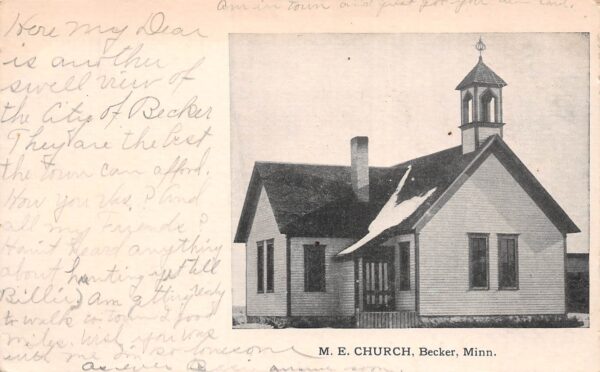 Am in town and just got your card.
Here My Dear
is another
swell view of
the City of Becker
They are the best
the town can afford.
How you vas? And
all my Friends?
Haint heard anything
about hunting yet tell
Billie, Am getting ready
to walk good
miles. Wish you was
with me Im so lonesome
As ever
M. E. CHURCH, Becker, Minn.